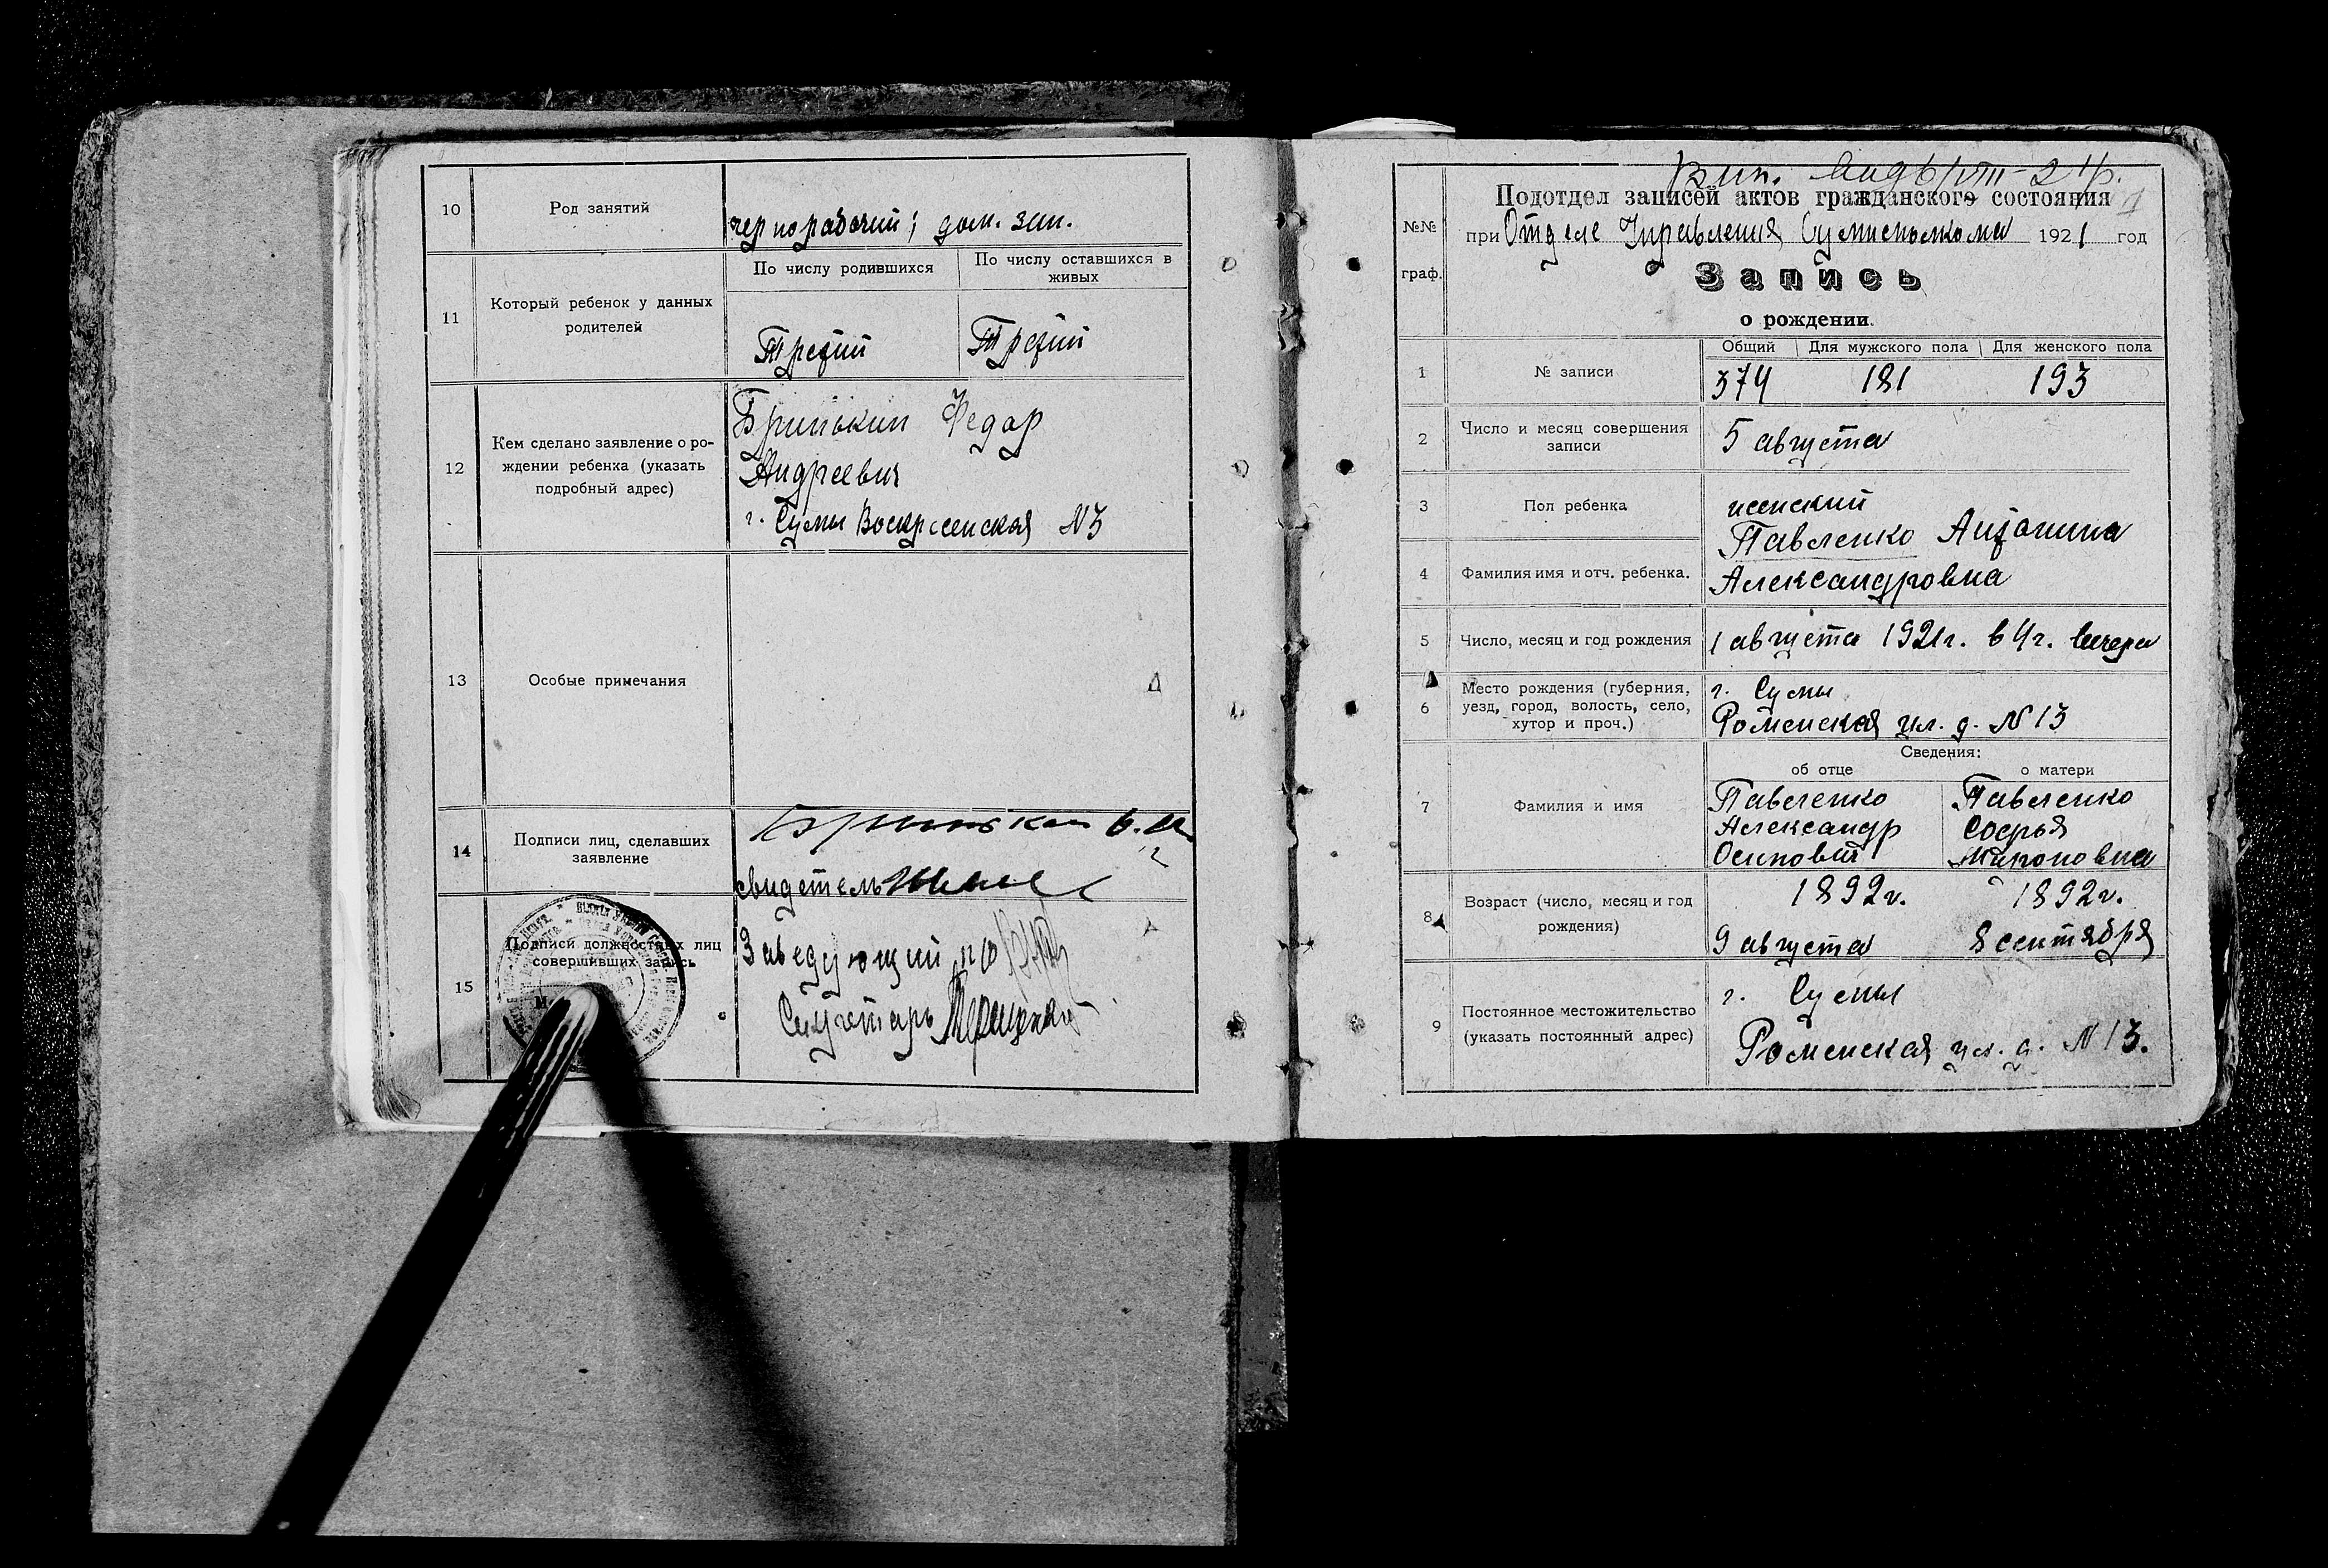 10
Род занятий
чернорабочий; дом. зан.
11
Который ребенок у данных
родителей
По числу родившихся
По числу оставшихся в
живых
Третий
Третий
12
Кем сделано заявление о ро-
ждении ребенка (указать
подробный адрес)
Бринькин Федор
Андреевич
г. Сумы Воскресенская N3
13
Особые примечания
14
Подписи лиц, сделавших
заявление
свидетель
15
Подписи должностных лиц
совершивших запись
Заведующий п/о
Секретарь Терещенко
№№
граф.
Подотдел записей актов гражданского состояния
при Отделе Управления Сумисполкома 1921 год
Запись
о рождении.
1
№ записи
Общий
Для мужского пола
Для женского пола
374
181
193
2
Число и месяц совершения
записи
5 августа
3
Пол ребенка
женский
4
Фамилия имя и отч. ребенка.
Павленко Антонина
Александровна
5
Число, месяц и год рождения
1 августа 1921г. в 4ч. вечера
6
Место рождения (губерния,
уезд, город, волость, село,
хутор и проч.)
г. Сумы
Роменская ул. д. N13
Сведения:
об отце
о матери
7
Фамилия и имя
Павленко
Александр
Осипович
Павленко
Софья
Мироновна
8
Возраст (число, месяц и год
рождения)
1892г.
9 августа
1892г.
8 сентября
9
Постоянное местожительство
(указать постоянный адрес)
г. Сумы
Роменская ул. д. N13.